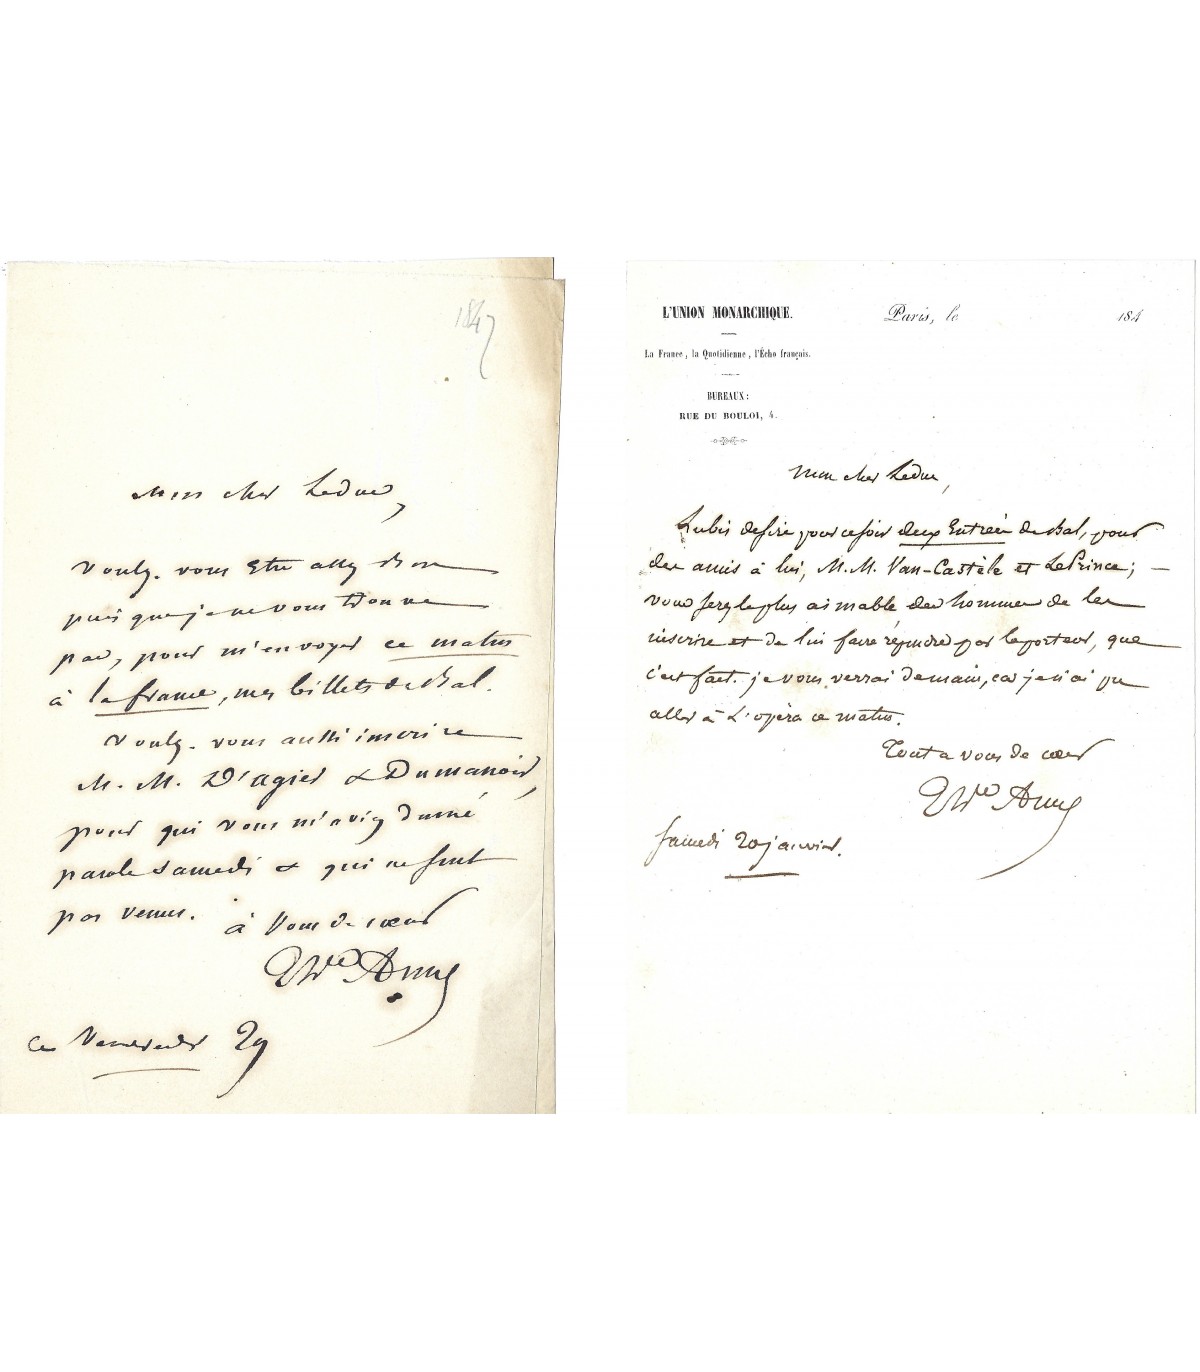 1847
Mon cher Leduc,
Voulez-vous être assez bon
puisque je ne vous trouve
pas, pour m'envoyer ce matin
à la france, mes billets de Bal.
Voulez-vous aussi inscrire
M. M. D'agier & Dumanoir,
pour qui vous m'aviez donné
parole samedi & qui ne sont
pas venus.
à Vous de cœur
Thre Anne
ce Vendredi 29
L'UNION MONARCHIQUE.
Paris, le 184
La France, la Quotidienne, l'Écho français.
BUREAUX:
RUE DU BOULOI, 4.
Mon cher Leduc,
Lubis desire pour ce soir deux Entrées de Bal, pour
des amis à lui, M. M. Van-Castèle et LePrince; —
vous serez le plus aimable des hommes de les
inscrire et de lui faire répondre par le porteur, que
c'est fait. je vous verrai demain, car je n'ai pu
aller à L'opéra ce matin.
Tout a vous de cœur
Thre Anne
Samedi 20 janvier.